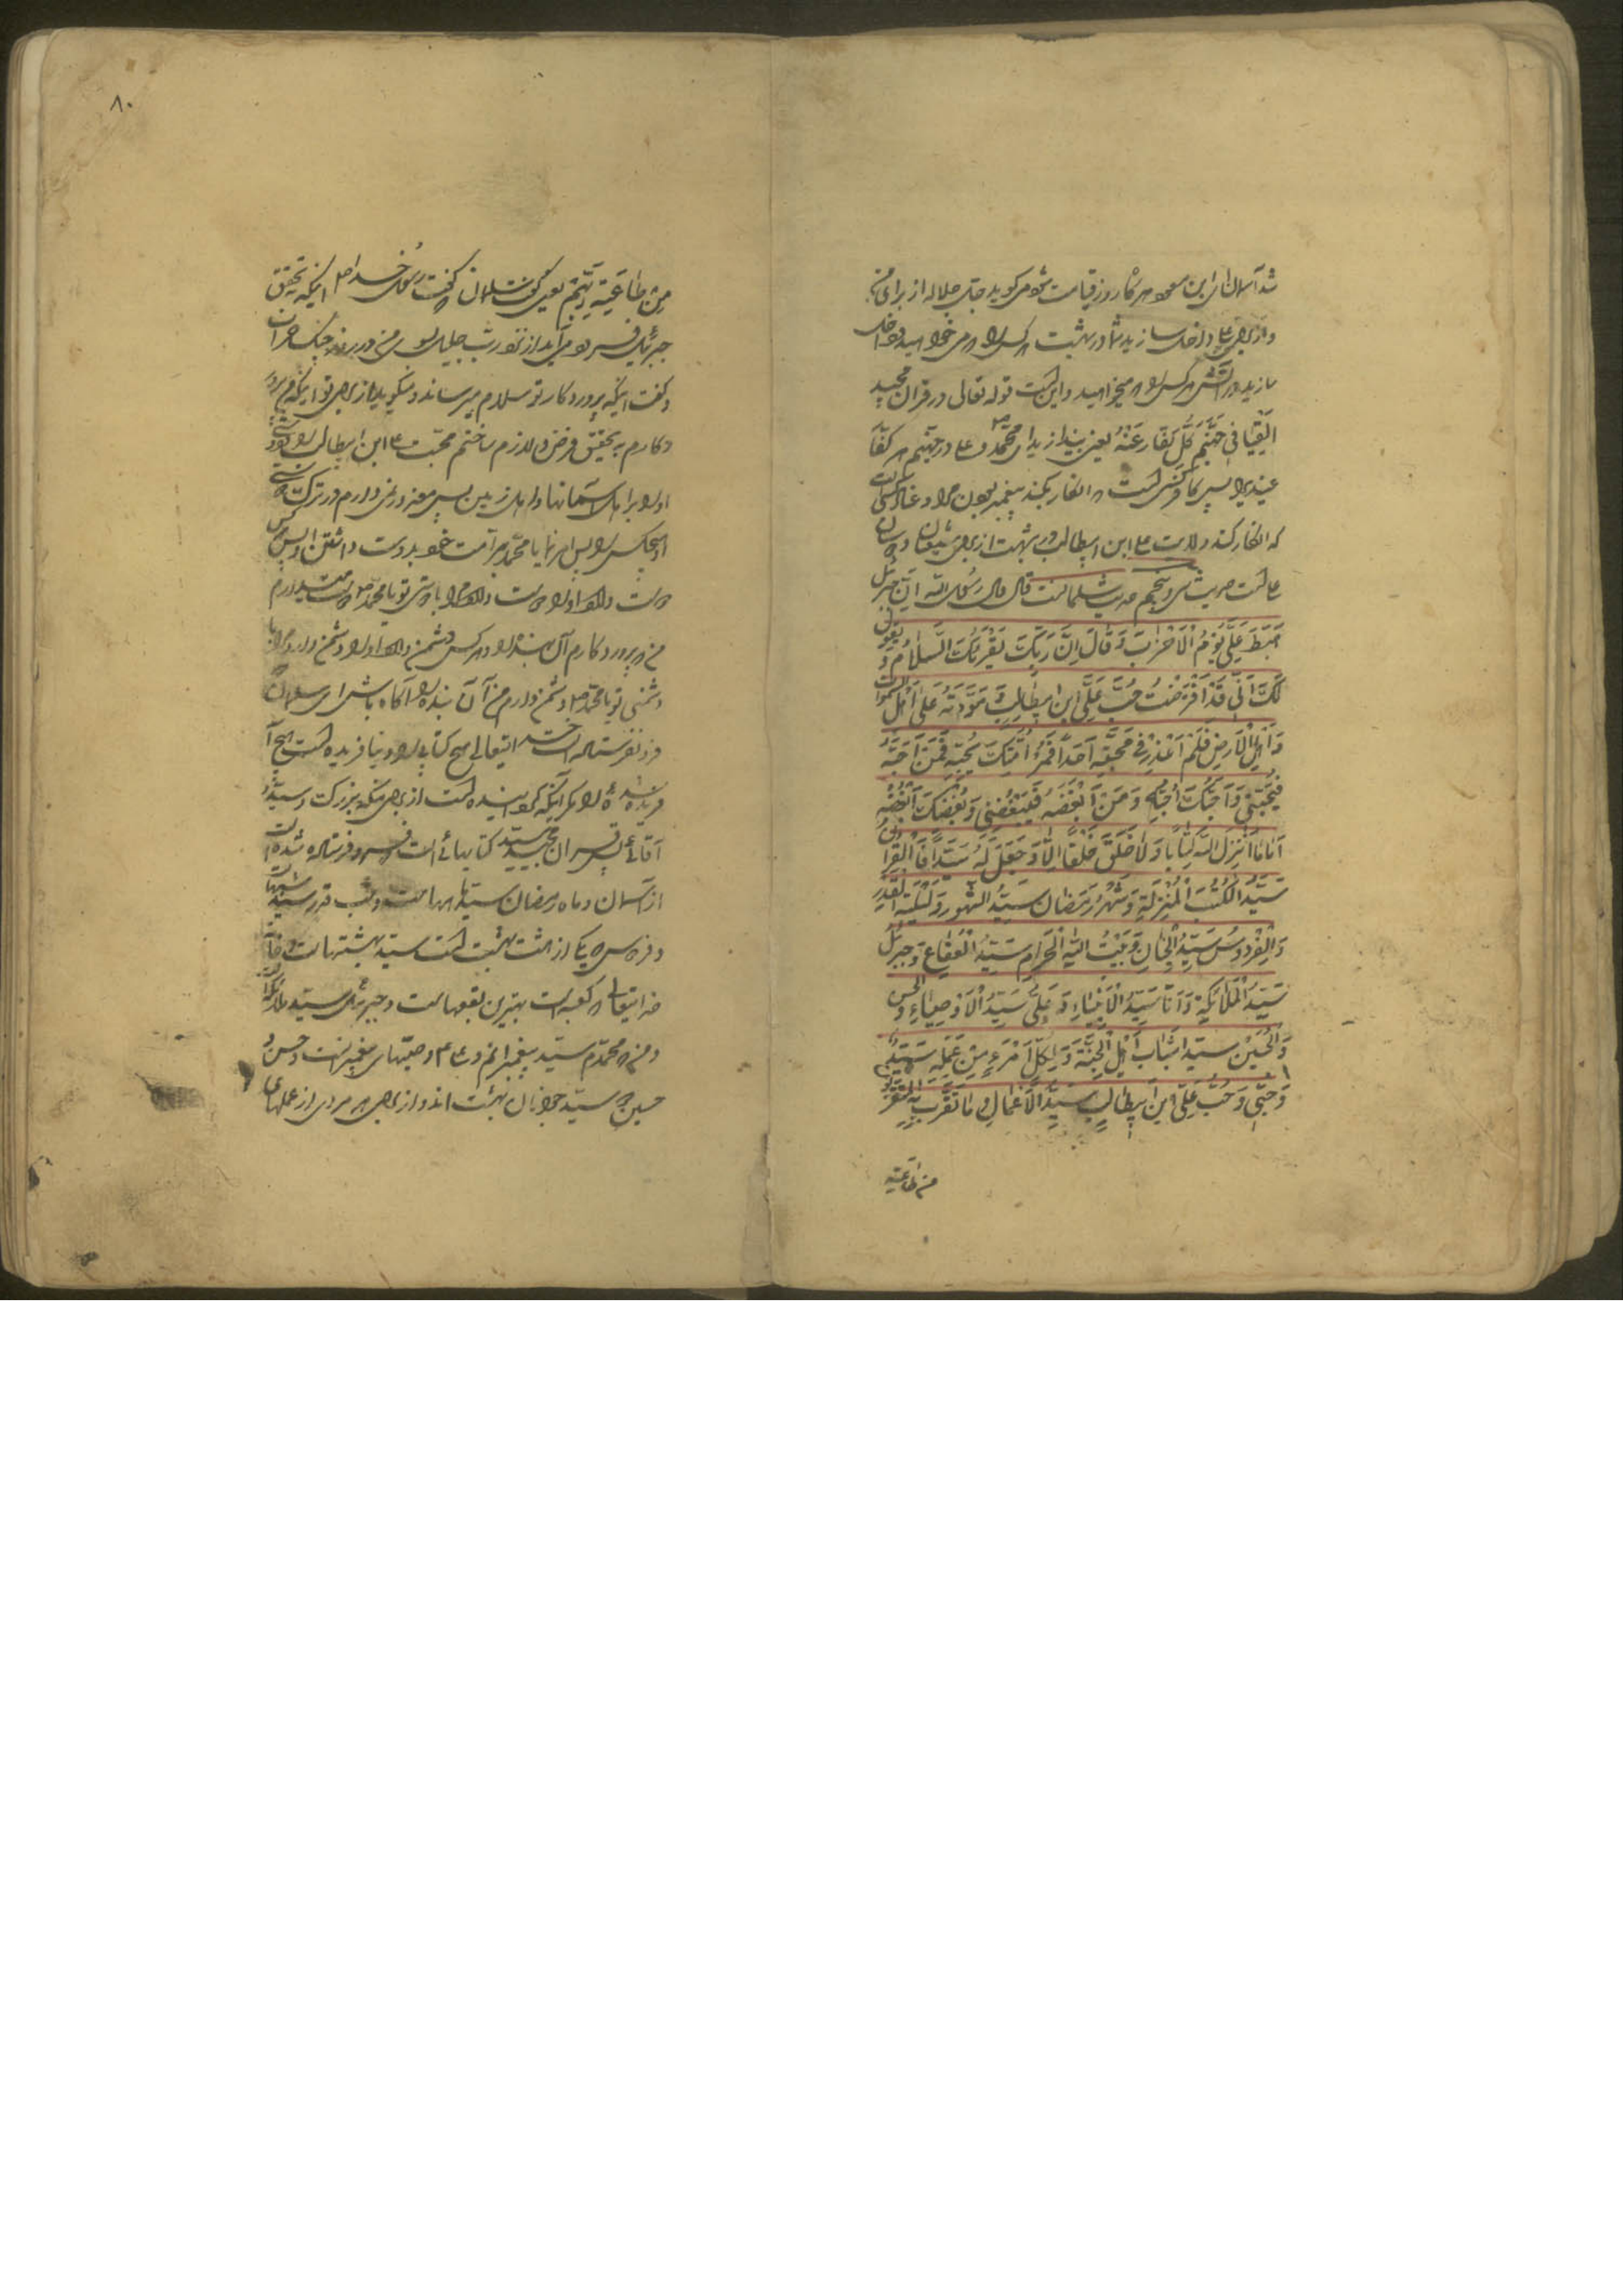 شد آسمان ای ابن مسعود هرگاه روز قیامت شود میگوید جل جلاله از برای من
و از برای علی داخل سازید شما در بهشت هر کس را که می خواهید و داخل
سازید در آتش هر کس را که میخواهید و این است قوله تعالی در قرآن مجید
اَلْقِیا فی جَهَنَّمَ کُلَّ کَفّارٍ عَنیدٍ یعنی بیندازید ای محمد و علی در جهنم هر کفار
عنید را پس کافر کسی است که انکار کند پیغمبری مرا و عناد کسی است
که انکار کند ولایت علی ابن ابیطالب و در بهشت از برای شیعیان و دوستان
علی است حدیث سی و پنجم حدیث سلمانست قال قال رسول الله اِنَّ جبرئیل
هَبَطَ عَلَیَّ یَوْمَ الْاَحْزابِ وَ قالَ اِنَّ رَبَّکَ یُقْرِئُکَ السَّلامُ وَ یَقُولُ
لَکَ اَنّی قَدْ اَفْتَرَضْتُ حُبَّ عَلِیِّ ابنِ ابیطالِبٍ وَ مَوَدَّتَهُ عَلی اَهْلِ السَّمواتِ
وَ اَهْلِ الْاَرْضِ فَلَمْ اَعْذِرْ فی مَحَبَّتِهِ اَحَداً فَمُرْ اُمَّتَکَ بِحُبِّهِ فَمَنْ اَحَبَّهُ
فَبِحُبّی وَ اَحَبَّکَ اُحِبُّهُ وَ مَنْ اَبْغَضَهُ فَبِبُغْضی وَ بُغْضِکَ اَبْغَضَهُ
اَما ما اَنْزَلَ اللهُ کِتاباً وَ لا خَلَقَ خَلْقاً اِلّا وَ جَعَلَ لَهُ سَیِّداً فَالْقُرانُ
سَیِّدُ الْکُتُبِ الْمُنْزِلَةِ وَ شَهْرُ رَمَضانَ سَیِّدُ الشُّهُورِ وَ لَیْلَةُ الْقَدْرِ
وَ الْفِرْدَوْسُ سَیِّدُ الْجِنانِ وَ بَیْتُ اللهِ الْحَرامِ سَیِّدُ الْبِقاعِ وَ جَبْرَئیلُ
سَیِّدُ الْمَلائِکَةِ وَ اَنَا سَیِّدُ الْاَنْبِیاءِ وَ عَلِیٌّ سَیِّدُ الْاَوْصِیاءِ وَ الْحَسَنُ
وَ الْحُسَیْنُ سَیِّدا شَبابِ اَهْلِ الْجَنَّةِ وَ لِکُلِّ امْرَءٍ مِنْ عَمَلِهِ سَیِّدٌ
وَ حُبّی وَ حُبُّ عَلِیِّ ابْنِ ابیطالِبٍ سَیِّدُ الْاَعْمالِ وَ ما تَقَرَّبَ بِهِ الْمُتَقَرِّبُ
من طاعته
۸۰
مِنْ طاعَةِ رَبِّهِمْ یعنی گفت سلمان که گفت رسول خدا ص اینکه بتحقیق
جبرئیل فرود می آید از نزد رب جلیل بسوی من در روز جنگ احزاب
و گفت اینکه پروردگار تو سلام میرساند و میگوید از برای تو اینکه من پرور
دکارم به تحقیق فرض و لازم ساختم محبت علی ابن ابیطالب را و دوستی
او را بر اهل آسمانها و اهل زمین پس معذور نمی دارم در ترک دوستی
او هیچکس را پس امر نما یا محمد مر امت خود بدوست داشتن او پس هر کس
دوست دارد او را دوست دارد مرا با دوستی تو یا محمد دوست میدارم
من که پروردگارم آن بنده را و هر کس دشمن دارد او را دشمن دارد مرا با
دشمنی تو یا محمد ص دشمن دارم من آن بنده را آگاه باش ای سلمان
فرو نفرستاده است خدایتعالی هیچ کتابی را و نیافریده است هیچ آ
فریده شده را مگر آنکه گردانیده است از برای او بزرگ و سید
آقائی پس قران مجید سید کتابهائی است که فرو فرستاده شده است
از آسمان و ماه رمضان سید ماهها است و شب قدر سید شبهاست
و فردوس که یکی از هشت بهشت است سید بهشتها است و خانه
خدایتعالی که کعبه است بهترین بقعهاست و جبرئیل سید ملائکه
و من که محمدم سید پیغمبرانم و علی سید وصیهای پیغمبرانست و حسن و
حسین دو سید جوانان بهشت اند و از برای هر مردی از عملهای